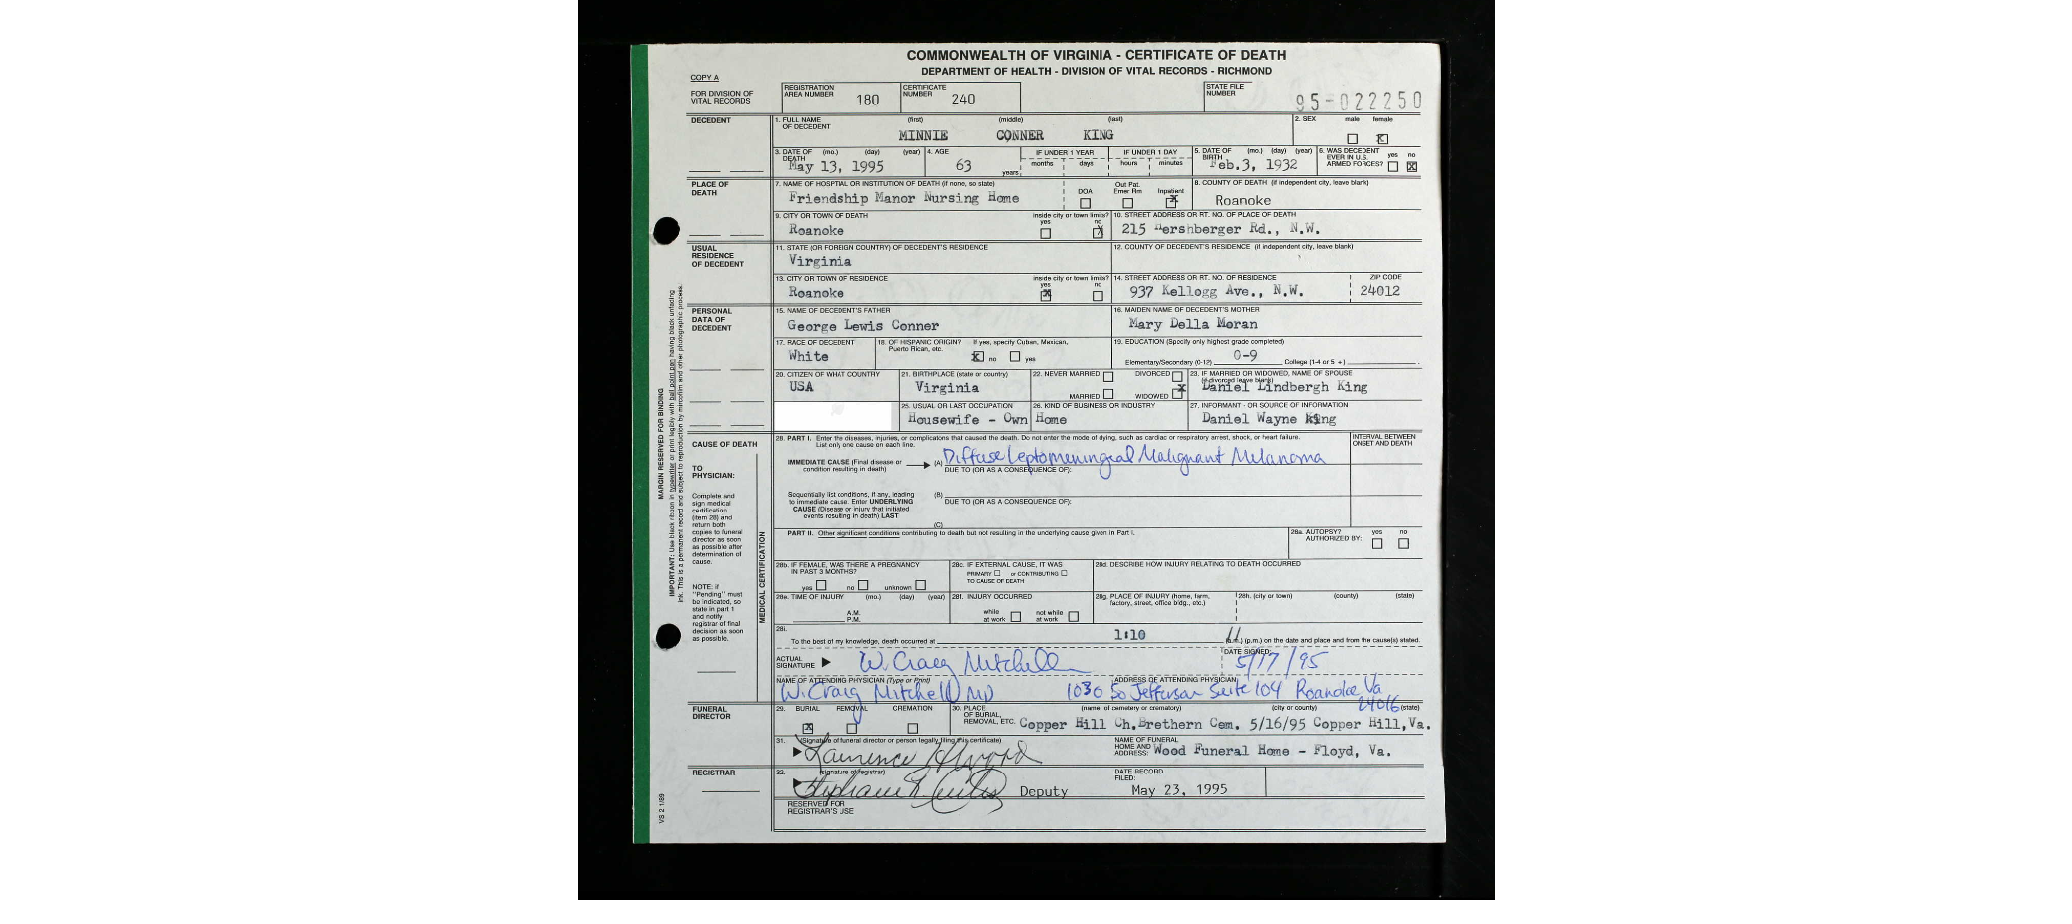 COMMONWEALTH OF VIRGINIA - CERTIFICATE OF DEATH
DEPARTMENT OF HEALTH - DIVISION OF VITAL RECORDS - RICHMOND
COPY A
FOR DIVISION OF VITAL RECORDS
REGISTRATION AREA NUMBER 180
CERTIFICATE NUMBER 240
STATE FILE NUMBER 95-022250
DECEDENT
1. FULL NAME OF DECEDENT (first) (middle) (last)
MINNIE CONNER KING
2. SEX male female X
3. DATE OF DEATH (mo.) (day) (year) May 13, 1995
4. AGE 63 years
IF UNDER 1 YEAR months days
IF UNDER 1 DAY hours minutes
5. DATE OF BIRTH (mo.) (day) (year) Feb.3, 1932
6. WAS DECEDENT EVER IN U.S. ARMED FORCES? yes no X
PLACE OF DEATH
7. NAME OF HOSPITAL OR INSTITUTION OF DEATH (if none, so state)
Friendship Manor Nursing Home
DOA Out Pat. Emer Rm Inpatient X
8. COUNTY OF DEATH (if independent city, leave blank)
Roanoke
9. CITY OR TOWN OF DEATH inside city or town limits? yes no X
Roanoke
10. STREET ADDRESS OR RT. NO. OF PLACE OF DEATH
215 Hershberger Rd., N.W.
USUAL RESIDENCE OF DECEDENT
11. STATE (OR FOREIGN COUNTRY) OF DECEDENT'S RESIDENCE
Virginia
12. COUNTY OF DECEDENT'S RESIDENCE (if independent city, leave blank)
13. CITY OR TOWN OF RESIDENCE inside city or town limits? yes X no
Roanoke
14. STREET ADDRESS OR RT. NO. OF RESIDENCE ZIP CODE
937 Kellogg Ave., N.W. 24012
PERSONAL DATA OF DECEDENT
15. NAME OF DECEDENT'S FATHER
George Lewis Conner
16. MAIDEN NAME OF DECEDENT'S MOTHER
Mary Della Moran
17. RACE OF DECEDENT
White
18. OF HISPANIC ORIGIN? If yes, specify Cuban, Mexican, Puerto Rican, etc.
X no yes
19. EDUCATION (Specify only highest grade completed)
Elementary/Secondary (0-12) 0-9 College (1-4 or 5 +)
20. CITIZEN OF WHAT COUNTRY
USA
21. BIRTHPLACE (state or country)
Virginia
22. NEVER MARRIED DIVORCED
MARRIED WIDOWED X
23. IF MARRIED OR WIDOWED, NAME OF SPOUSE (if divorced leave blank)
Daniel Lindbergh King
25. USUAL OR LAST OCCUPATION
Housewife - Own
26. KIND OF BUSINESS OR INDUSTRY
Home
27. INFORMANT - OR SOURCE OF INFORMATION
Daniel Wayne King
CAUSE OF DEATH
TO PHYSICIAN:
Complete and sign medical certification (item 28) and return both copies to funeral director as soon as possible after determination of cause.
NOTE: if "Pending" must be indicated, so state in part 1 and notify registrar of final decision as soon as possible.
MEDICAL CERTIFICATION
28. PART I. Enter the diseases, injuries, or complications that caused the death. Do not enter the mode of dying, such as cardiac or respiratory arrest, shock, or heart failure.
List only one cause on each line.
INTERVAL BETWEEN ONSET AND DEATH
IMMEDIATE CAUSE (Final disease or condition resulting in death) (A) Diffuse Leptomeningeal Malignant Melanoma
DUE TO (OR AS A CONSEQUENCE OF):
Sequentially list conditions, if any, leading to immediate cause. Enter UNDERLYING CAUSE (Disease or injury that initiated events resulting in death) LAST
(B)
DUE TO (OR AS A CONSEQUENCE OF):
(C)
PART II. Other significant conditions contributing to death but not resulting in the underlying cause given in Part I.
28a. AUTOPSY? AUTHORIZED BY: yes no
28b. IF FEMALE, WAS THERE A PREGNANCY IN PAST 3 MONTHS?
yes no unknown
28c. IF EXTERNAL CAUSE, IT WAS
PRIMARY or CONTRIBUTING
TO CAUSE OF DEATH
28d. DESCRIBE HOW INJURY RELATING TO DEATH OCCURRED
28e. TIME OF INJURY (mo.) (day) (year)
A.M.
P.M.
28f. INJURY OCCURRED
while at work not while at work
28g. PLACE OF INJURY (home, farm, factory, street, office bldg., etc.)
28h. (city or town) (county) (state)
28i.
To the best of my knowledge, death occurred at 1:10 (a.m.) (p.m.) on the date and place and from the cause(s) stated.
ACTUAL SIGNATURE W. Craig Mitchell
DATE SIGNED: 5/17/95
NAME OF ATTENDING PHYSICIAN (Type or Print)
W. Craig Mitchell MD
ADDRESS OF ATTENDING PHYSICIAN
1030 So Jefferson Suite 104 Roanoke Va 24016
FUNERAL DIRECTOR
29. BURIAL X REMOVAL CREMATION
30. PLACE OF BURIAL, REMOVAL, ETC. (name of cemetery or crematory) (city or county) (state)
Copper Hill Ch.Brethern Cem. 5/16/95 Copper Hill,Va.
31. (Signature of funeral director or person legally filing this certificate)
Laurence H Wood
NAME OF FUNERAL HOME AND ADDRESS: Wood Funeral Home - Floyd, Va.
REGISTRAR
32. (signature of registrar)
Deputy
DATE RECORD FILED: May 23, 1995
RESERVED FOR REGISTRAR'S USE
MARGIN RESERVED FOR BINDING
IMPORTANT: Use black ribbon in typewriter or print legibly with ball point pen having black unfading ink. This is a permanent record and subject to reproduction by microfilm and other photographic process.
VS 2 1/89